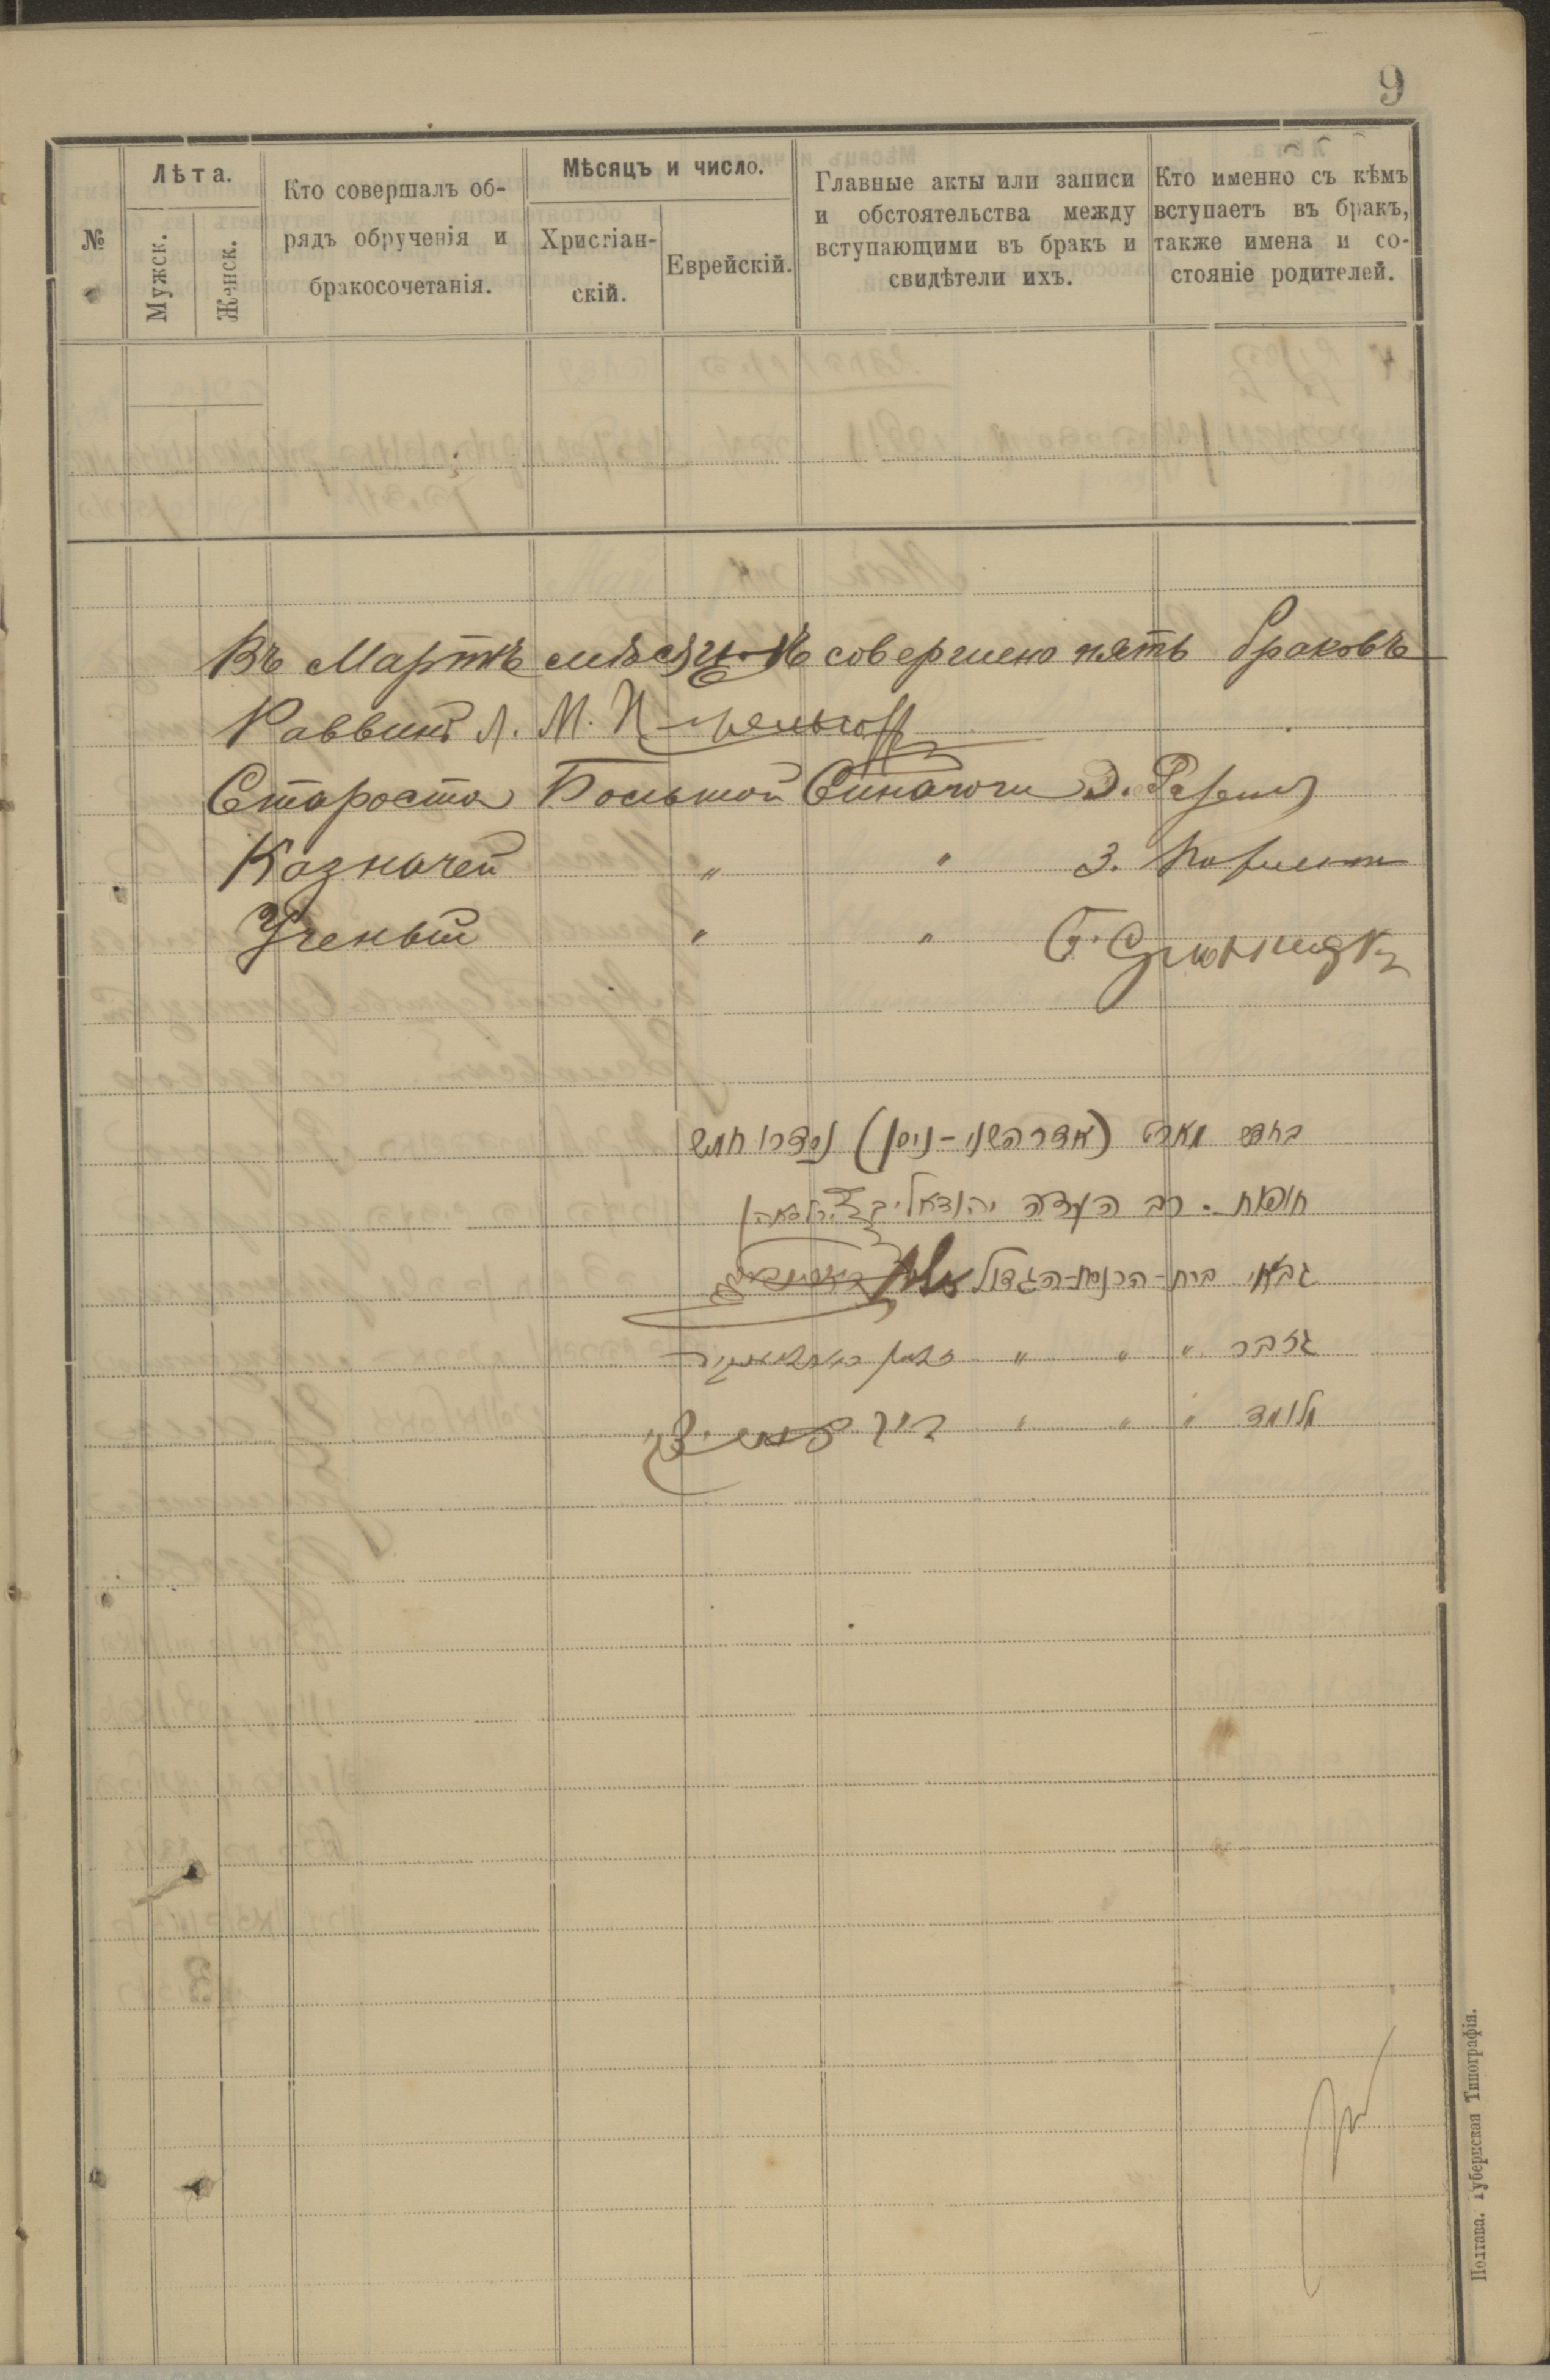 9
№
Лѣта.
Мужск.
Женск.
Кто совершалъ об-
рядъ обрученія и
бракосочетанія.
Мѣсяцъ и число.
Христіан-
скій.
Еврейскій.
Главные акты или записи
и обстоятельства между
вступающими въ бракъ и
свидѣтели ихъ.
Кто именно съ кѣмъ
вступаетъ въ бракъ,
также имена и со-
стояніе родителей.
Въ Мартѣ мѣсяцѣ совершено пять браковъ
Раввинъ Л. М.
Староста Большой Синагоги
Казначей " " З.
Ученый " "
בחדש מארט (אדר השני - ניסן) נסדרו חמש
חופות. רב העדה
גבאי בית-הכנסת-הגדול
גזבר " " "
מלומד " " "
Полтава. Губернская Типографія.